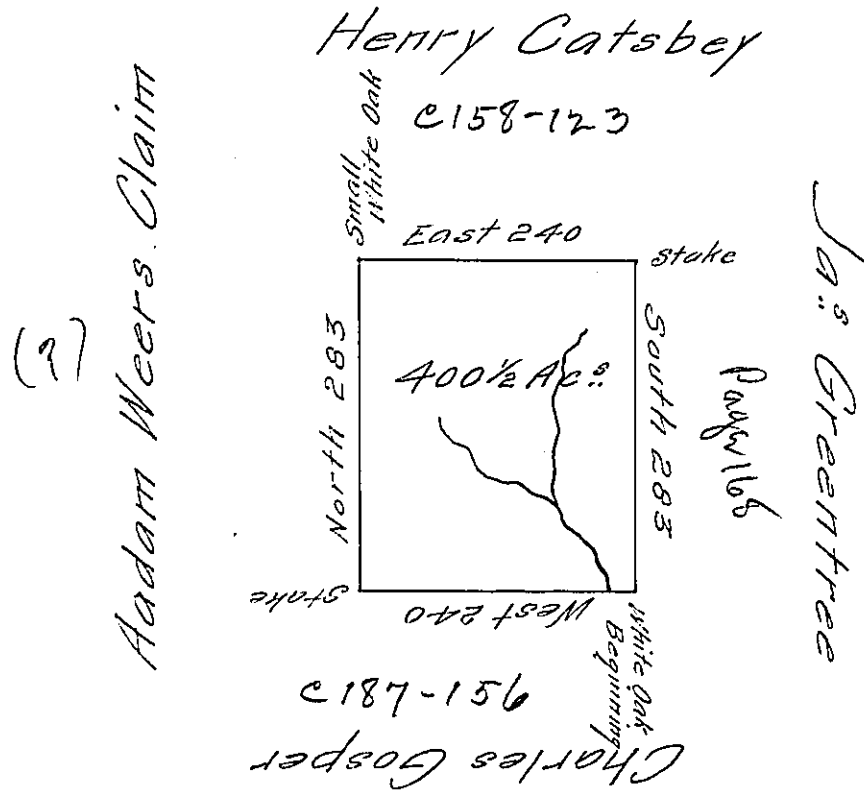 Henry Catsbey
C158-123
Small
White Oak
East 240
Stake
Aadam Weers Claim
(?)
North 283
400½ Ac.s
South 283
Page 168
Ja.s Greentree
Stake
West 240
White Oak
Beginning
C187-156
Charles Gosper